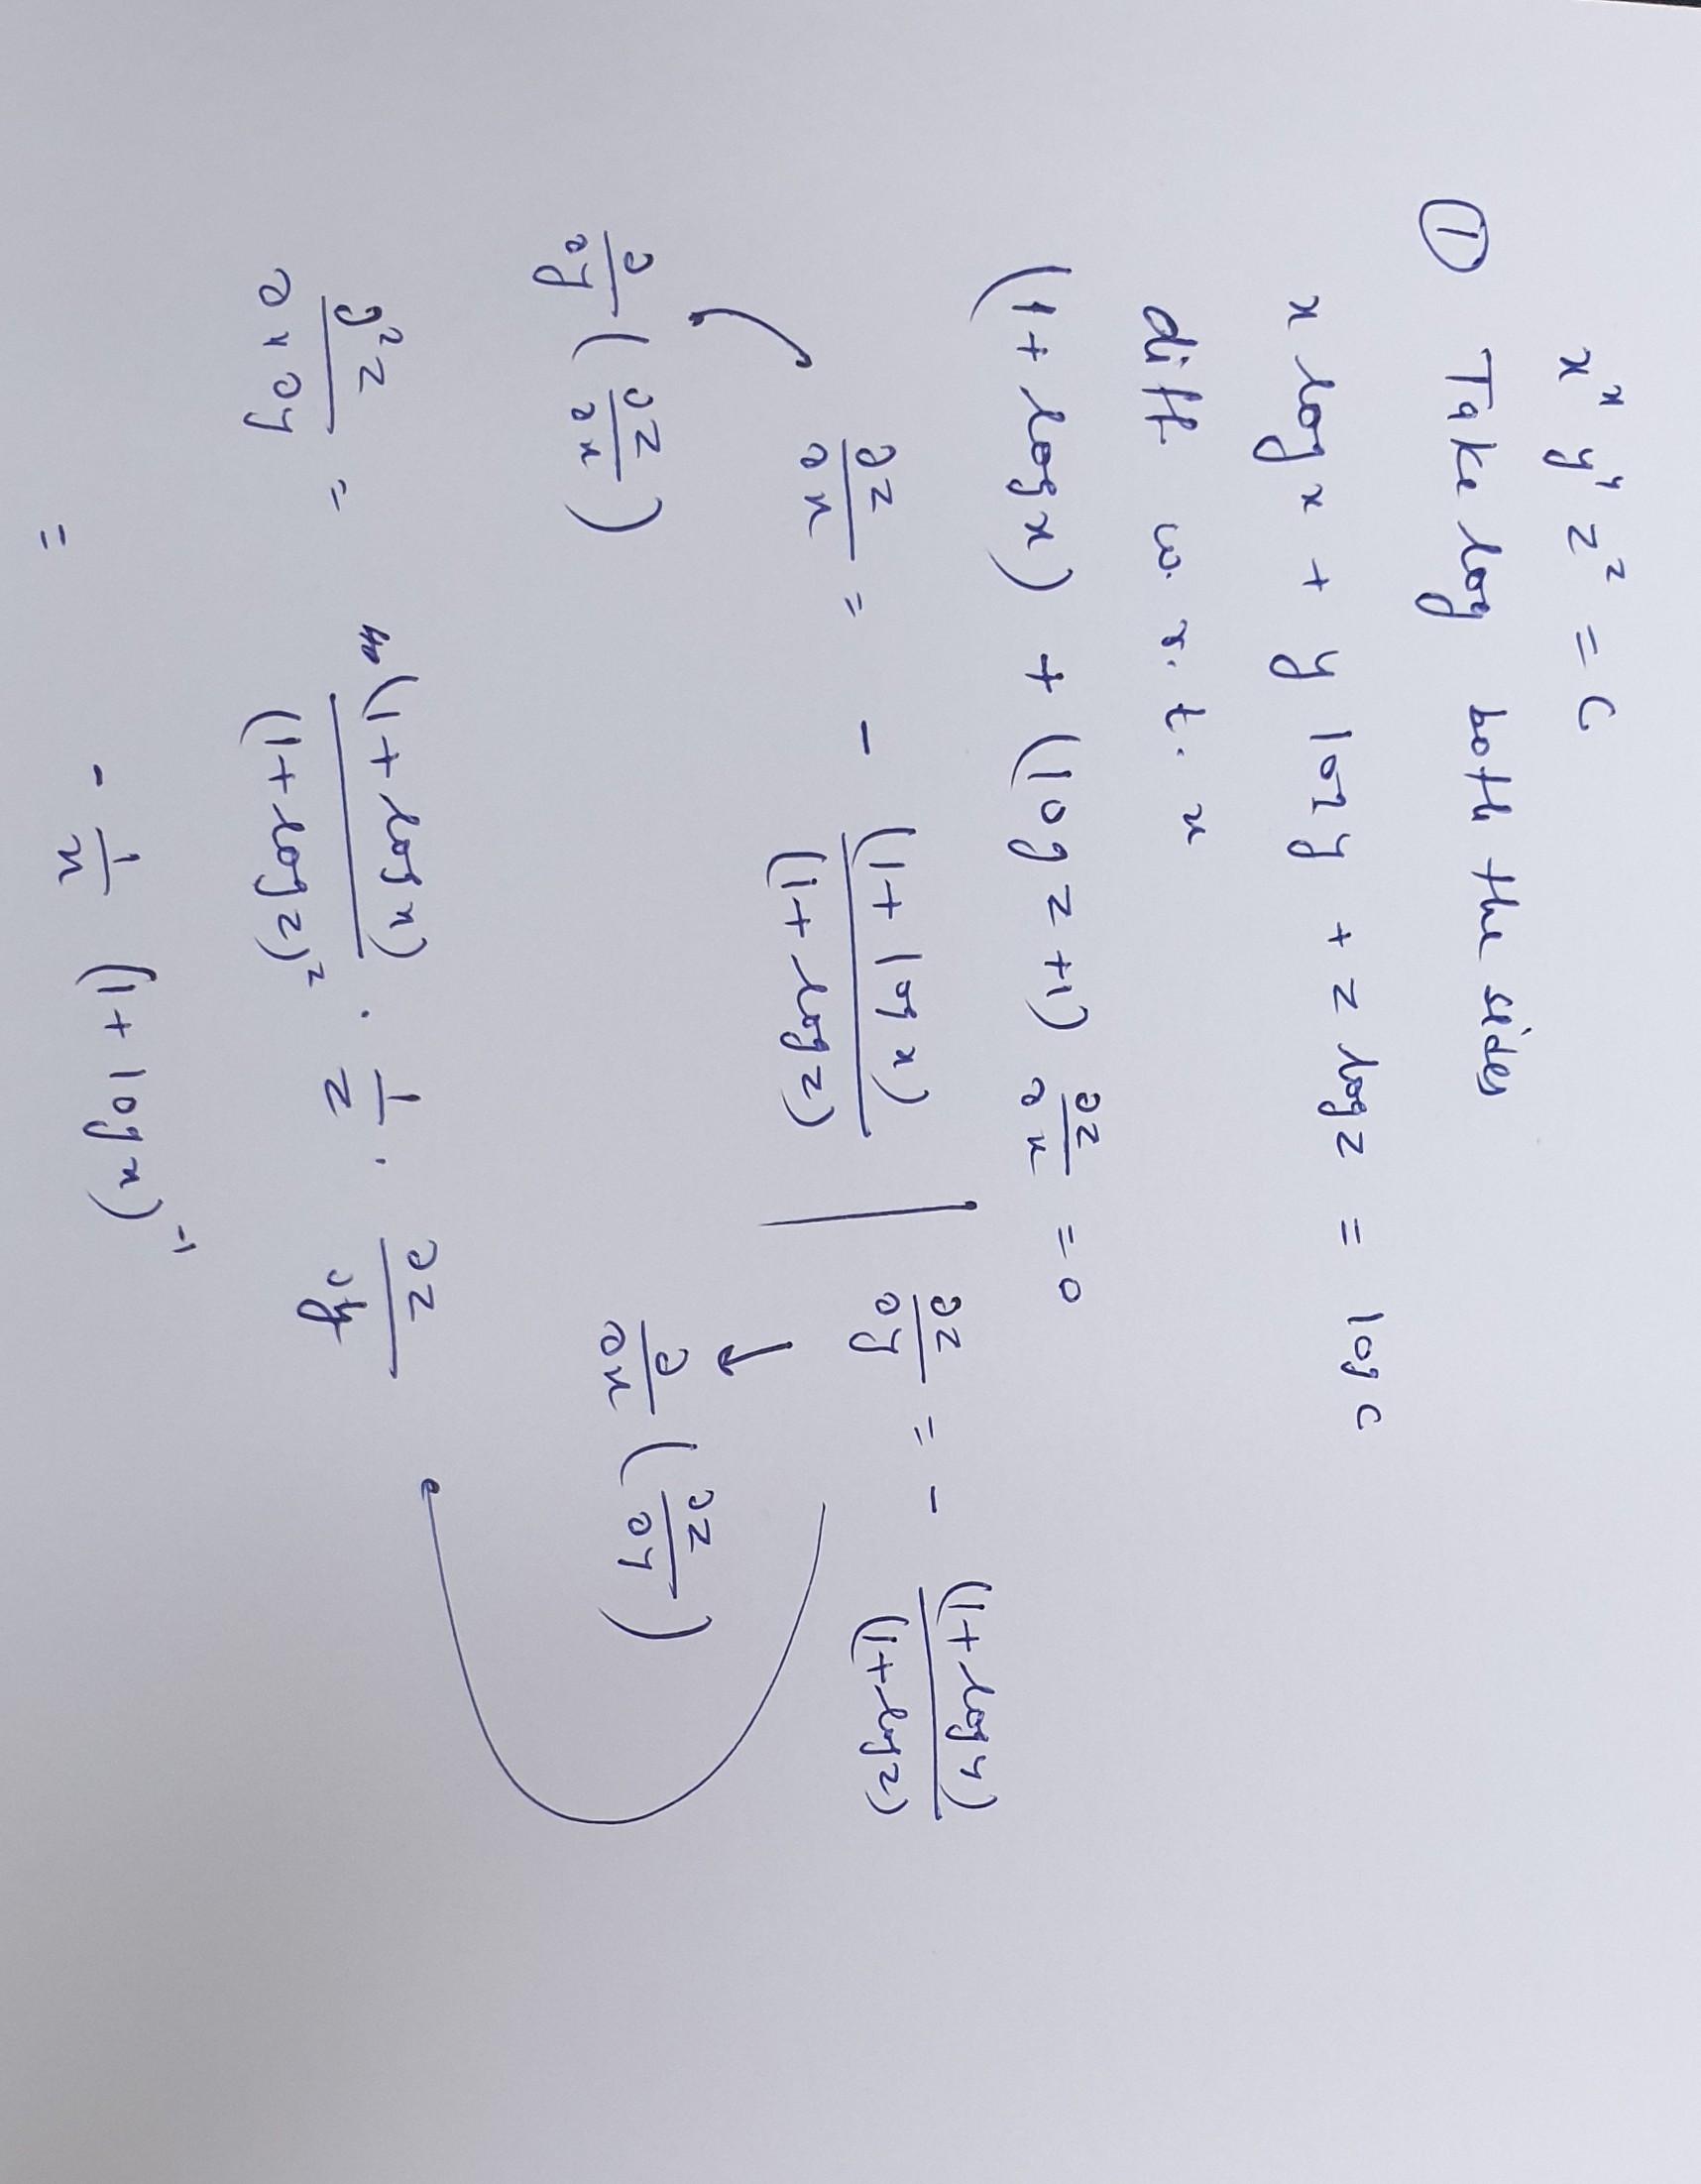 x^x y^y z^z = C
① Take log both the sides
x log x + y log y + z log z = log c
diff w. r. t. x
(1 + log x) + (log z + 1) ∂z/∂x = 0
∂z/∂x = - (1 + log x)/(1 + log z) | ∂z/∂y = - (1 + log y)/(1 + log z)
∂/∂y (∂z/∂x) ↓ ∂/∂x (∂z/∂y)
∂²z/∂x∂y = (1 + log x)/(1 + log z)² · 1/z · ∂z/∂y
= - 1/x (1 + log x)^-1